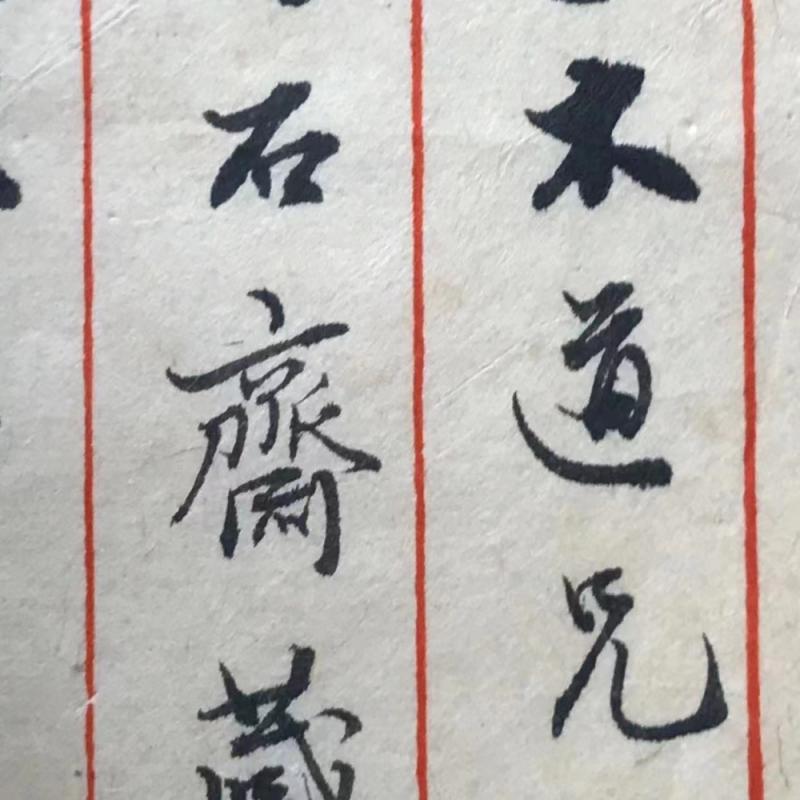 木道兄
石齋藏